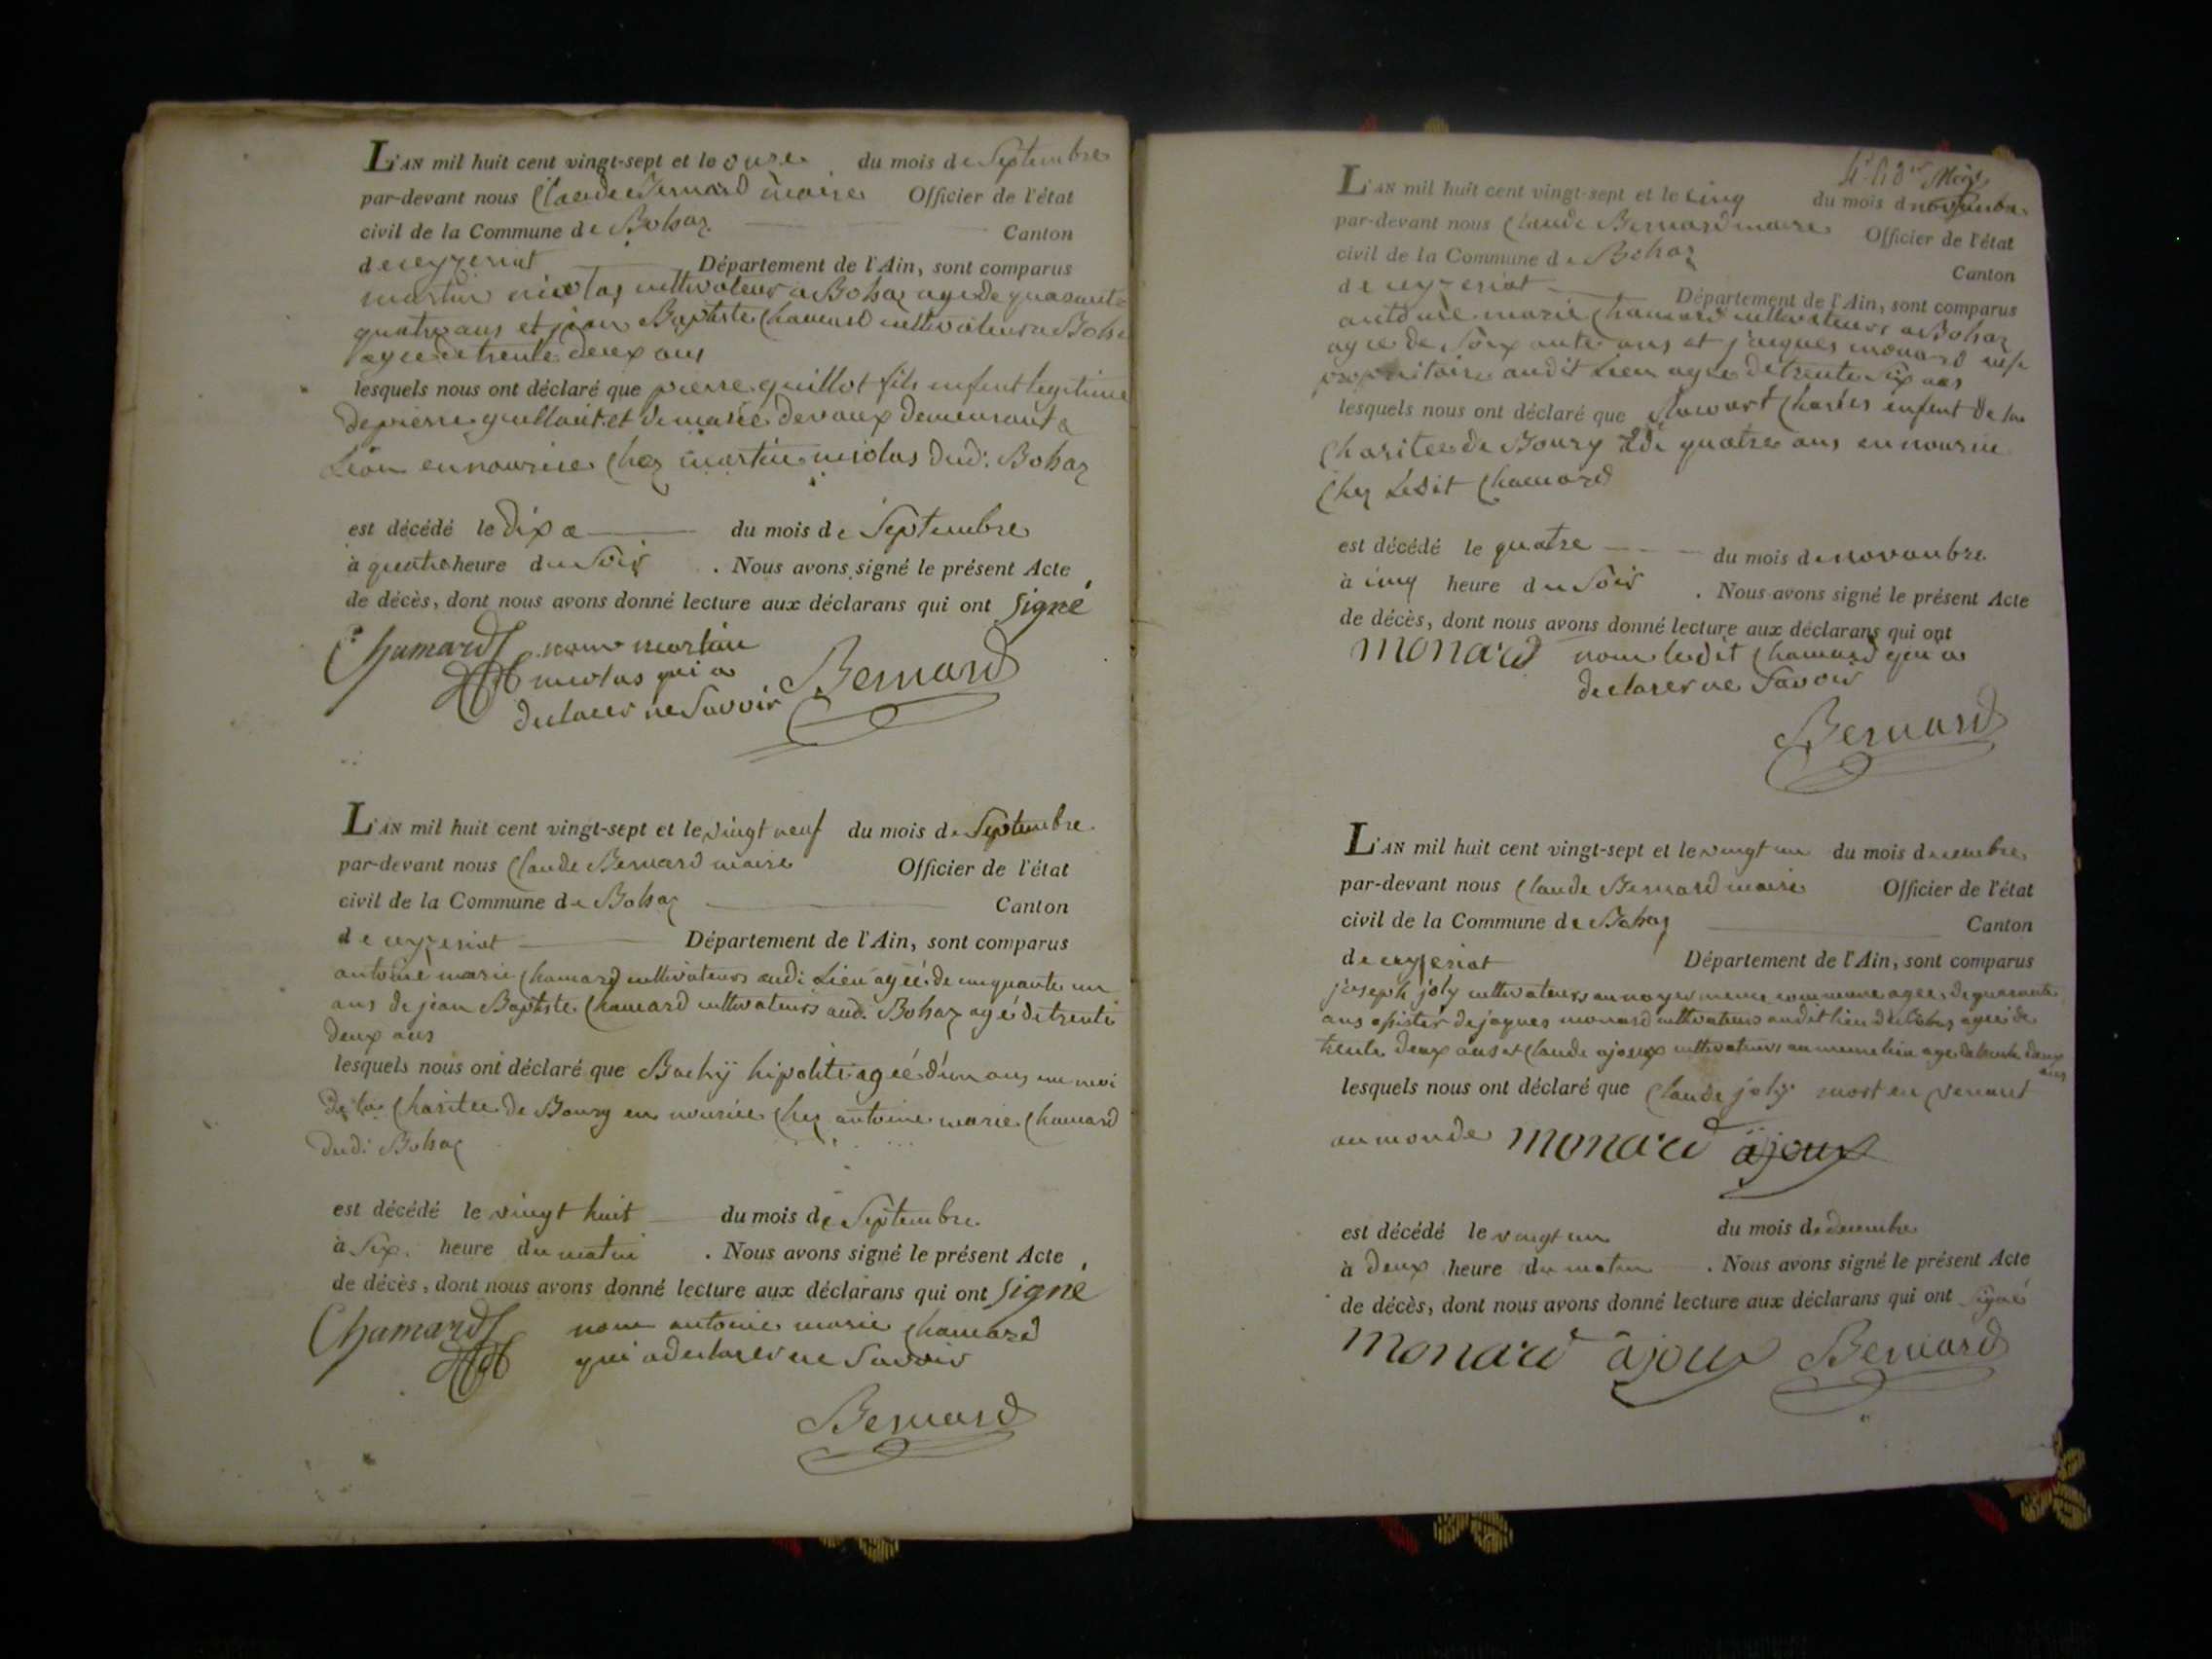 L'AN mil huit cent vingt-sept et le onze du mois de Septembre
par-devant nous Claude Bernard maire Officier de l'état
civil de la Commune de Bohaz Canton
de ceyzeriat Département de l'Ain, sont comparus
martin nicolas cultivateur a Bohaz agé de quarante
quatre ans et jean Baptiste Chamard cultivateur a Boha
agée de trente deux ans
lesquels nous ont déclaré que pierre guillot fils enfent legitime
de pierre guillout et de marie devaux demeurant a
Lion en nourice Chez martin nicolas dud. Bohaz
est décédé le dix du mois de Septembre
à quatre heure du Soir . Nous avons signé le présent Acte
de décès, dont nous avons donné lecture aux déclarans qui ont signé
Chamard non martin
nicolas qui a Bernard
declarer ne Savoir
L'AN mil huit cent vingt-sept et le vingt neuf du mois de Septembre
par-devant nous Claude Bernard maire Officier de l'état
civil de la Commune de Bohaz Canton
de ceyzeriat Département de l'Ain, sont comparus
antoine marie Chamard cultivateurs audi Lieu agée de cinquante un
ans de jean Baptiste Chamard cultivateurs aud. Bohaz agé de trente
deux ans
lesquels nous ont déclaré que Bachÿ hipolite agée d'un ans un moi
De la Charitee de Bourg en nourice Chez antoine marie Chamard
dudi Bohaz
est décédé le vingt huit du mois de Septembre
à Six heure du matin . Nous avons signé le présent Acte
de décès, dont nous avons donné lecture aux déclarans qui ont signé
Chamard non antoine marie Chamard
qui a declarer ne Savoir
Bernard
L'AN mil huit cent vingt-sept et le cinq du mois de novembre
par-devant nous Claude Bernard maire Officier de l'état
civil de la Commune de Bohaz Canton
de ceyzeriat Département de l'Ain, sont comparus
antoine marie Chamard cultivateurs a Bohaz
agée de Soixante ans et jacques monard
propriitaire audit Lieu agée de trente Six ans
lesquels nous ont déclaré que Charles enfent de la
Charitee de Bourg de quatre ans en nourice
Chez Ledit Chamard
est décédé le quatre du mois de novembre
à cinq heure du Soir . Nous avons signé le présent Acte
de décès, dont nous avons donné lecture aux déclarans qui ont
monard non ledit Chamard qui a
declarer ne Savoir
Bernard
L'AN mil huit cent vingt-sept et le vingt un du mois decembre
par-devant nous Claude Bernard maire Officier de l'état
civil de la Commune de Bohaz Canton
de ceyzeriat Département de l'Ain, sont comparus
joseph joly cultivateurs au noyer meme commune agée de quarante
ans de jaques monard cultivateurs audit lieu de Bohaz agée de
trente deux ans et Claude ajoux cultivateurs au meme lieu age de trente deux
ans
lesquels nous ont déclaré que Claude joly mort en venant
au monde monard ajoux
est décédé le vingt un du mois de decembre
à deux heure du matin . Nous avons signé le présent Acte
de décès, dont nous avons donné lecture aux déclarans qui ont signé
monard ajoux Bernard